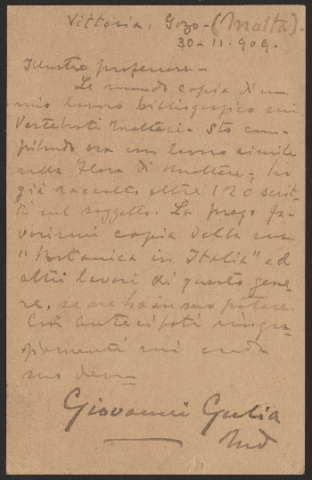 Vittoria, Gozo - (Malta).
30-11-909.
Illustre professore -
Le mando copia di un
mio lavoro bibliografico sui
Vertebrati Maltesi. Sto com-
pilando ora un lavoro simile
sulla Flora di Malta; ho
già raccolto oltre 120 scrit-
ti sul soggetto. La prego fa-
vorirmi copia della sua
"Botanica in Italia" ed
altri lavori di questo gene-
re, se ne ha in suo potere.
Con antecipati ringra-
ziamenti mi creda
suo dev.
Giovanni Gulia
MD